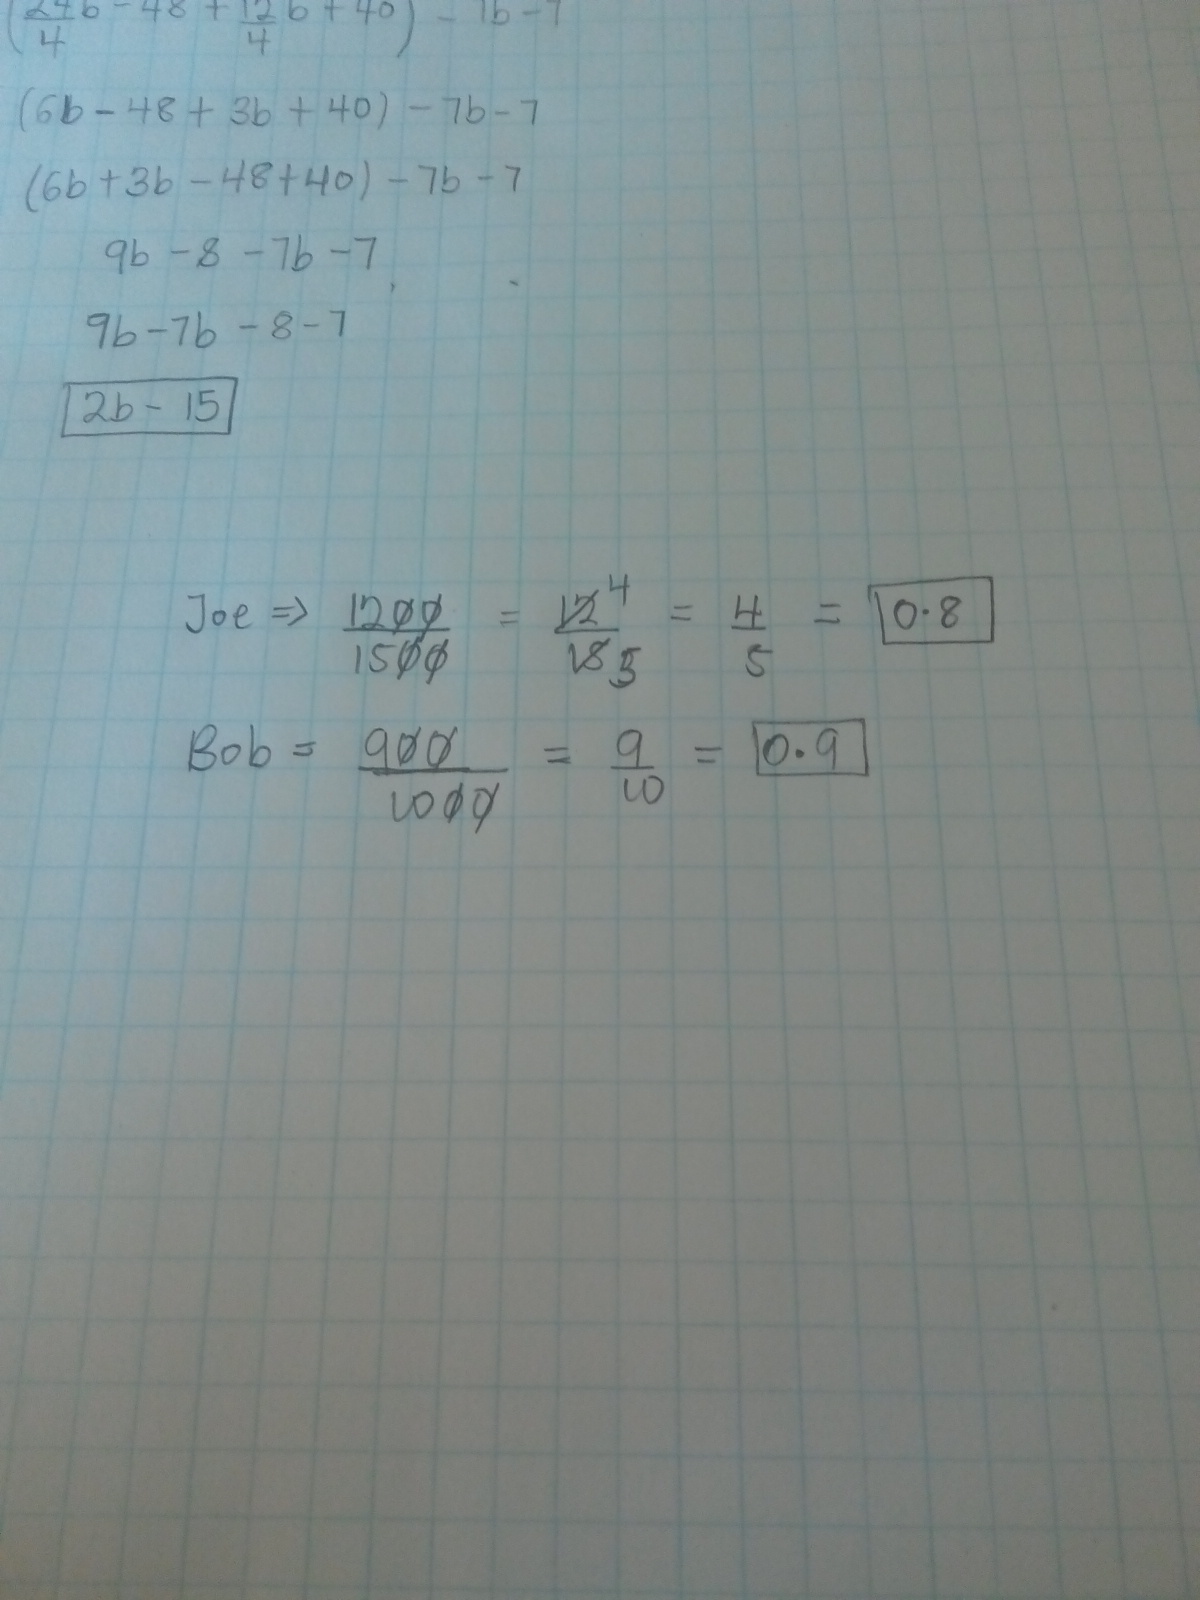 (24/4 b - 48 + 12/4 b + 40) - 7b - 7
(6b - 48 + 3b + 40) - 7b - 7
(6b + 3b - 48 + 40) - 7b - 7
9b - 8 - 7b - 7
9b - 7b - 8 - 7
2b - 15
Joe => 1200/1500 = 12 4/15 5 = 4/5 = 0.8
Bob = 900/1000 = 9/10 = 0.9